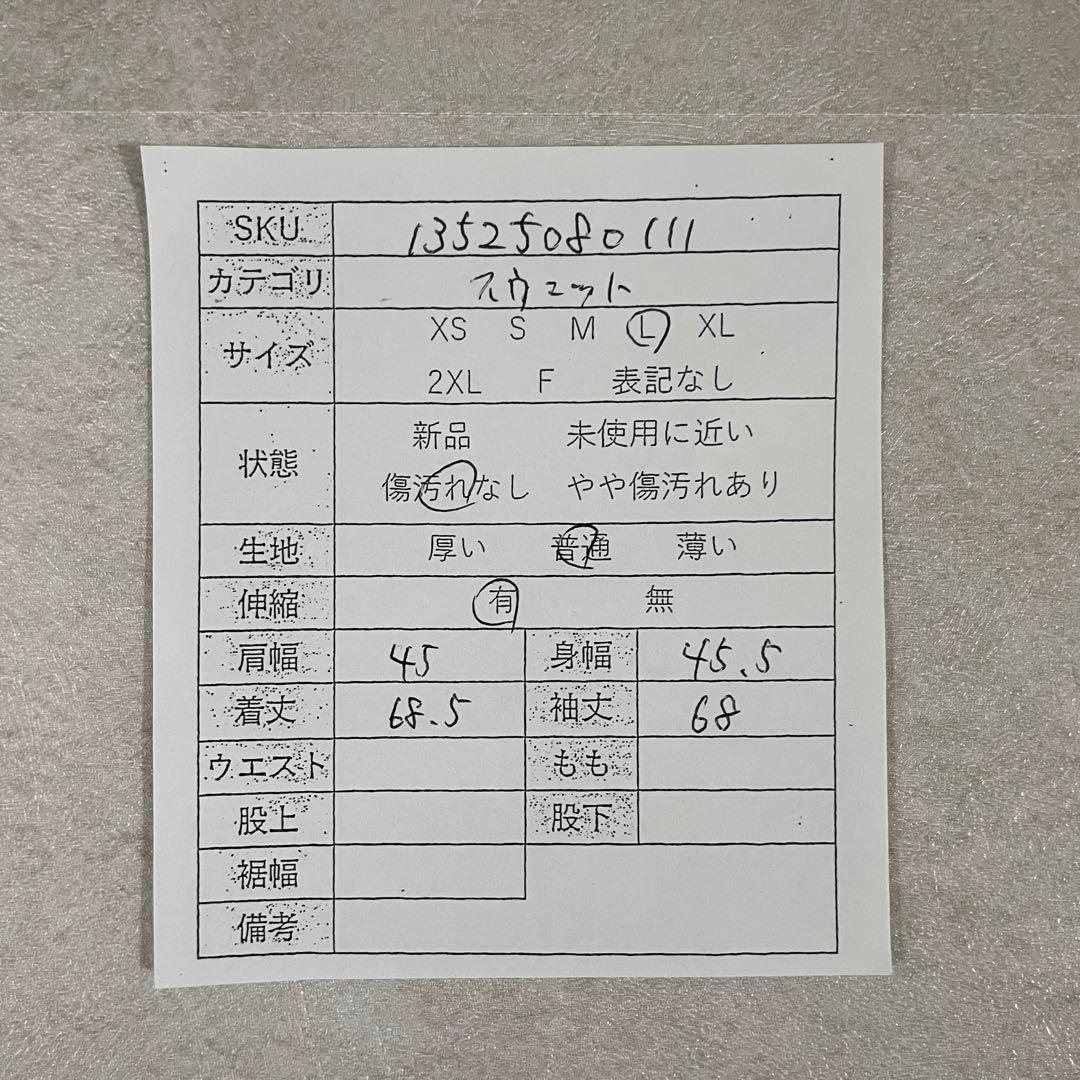 SKU 13525080111
カテゴリ スウェット
サイズ XS S M L XL
2XL F 表記なし
状態 新品 未使用に近い
傷汚れなし やや傷汚れあり
生地 厚い 普通 薄い
伸縮 有 無
肩幅 45 身幅 45.5
着丈 68.5 袖丈 68
ウエスト もも
股上 股下
裾幅
備考